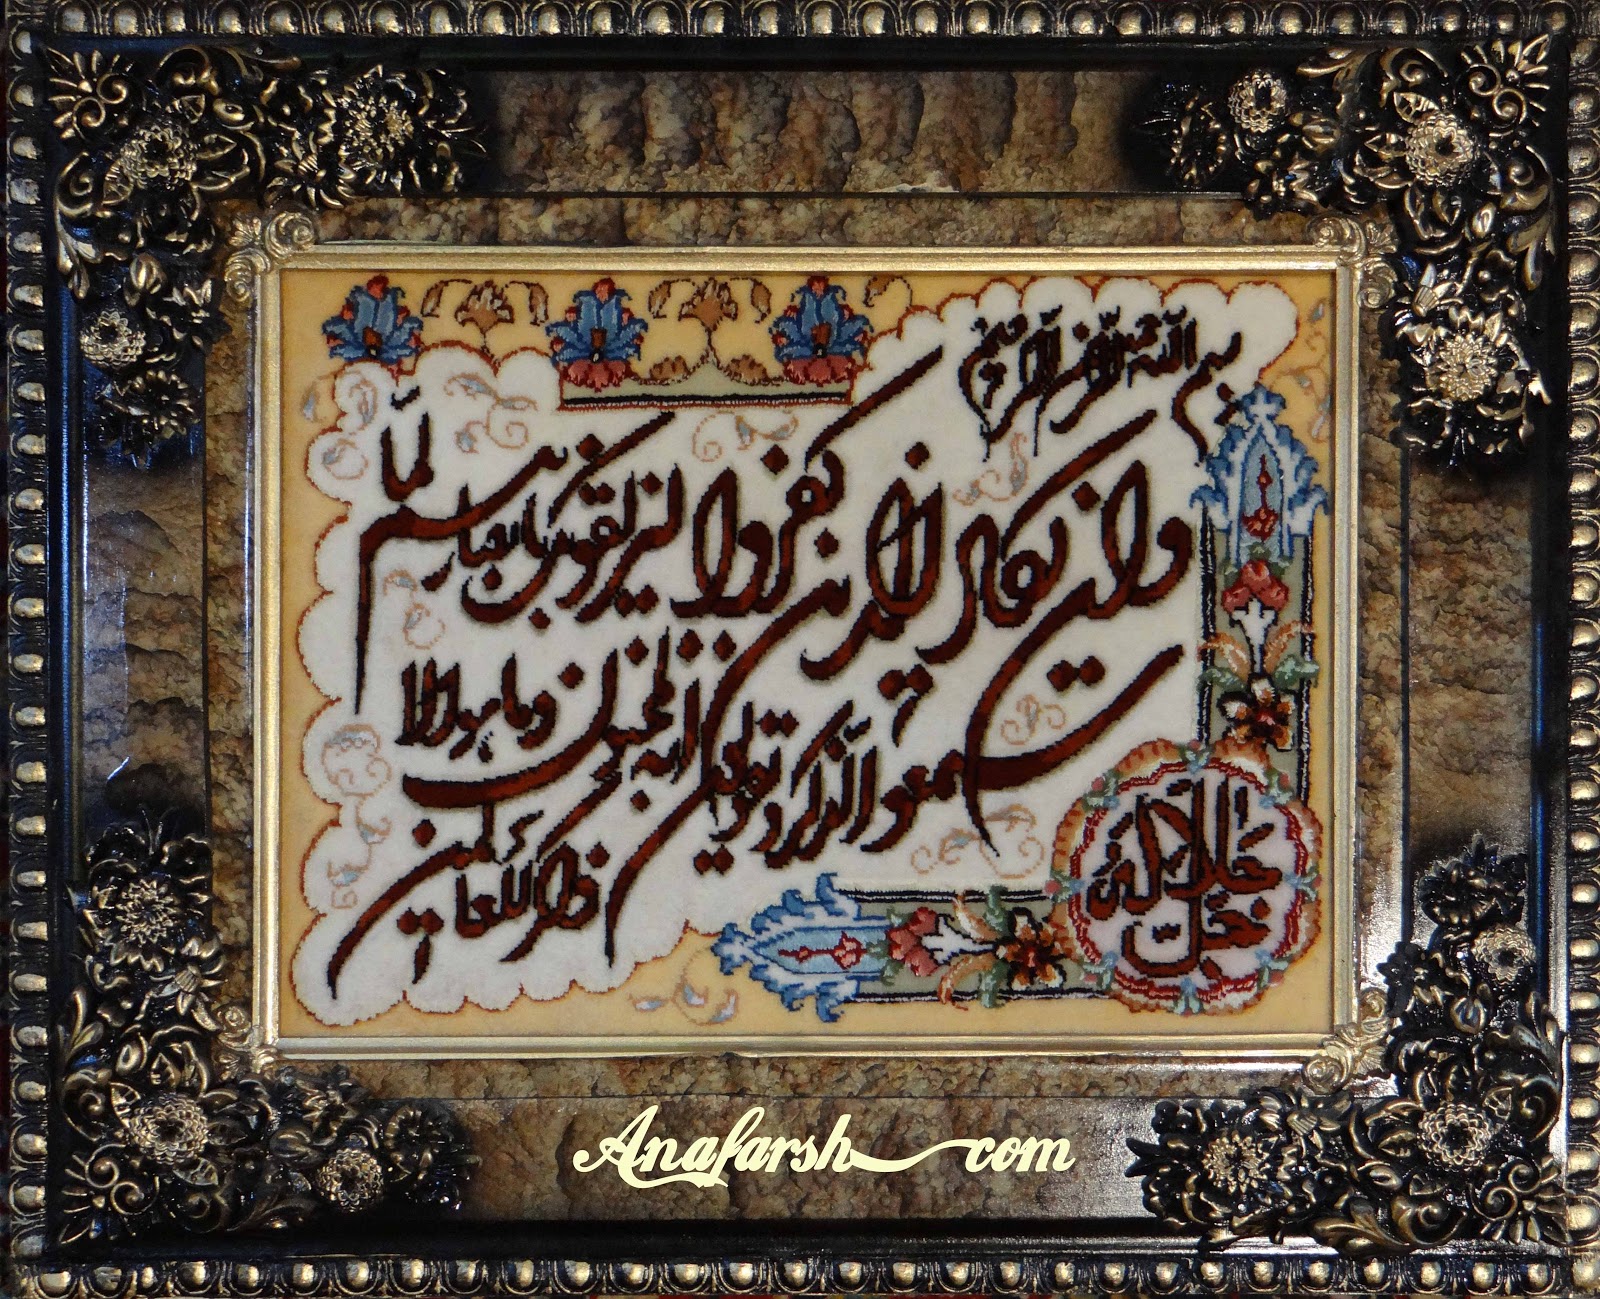 بسم الله الرحمن الرحیم
وان یکاد الذین کفروا لیزلقونک بابصارهم لما
سمعوا الذکر و یقولون انه لمجنون و ما هو الا
ذکر للعالمین
جل جلاله
Anafarsh.com